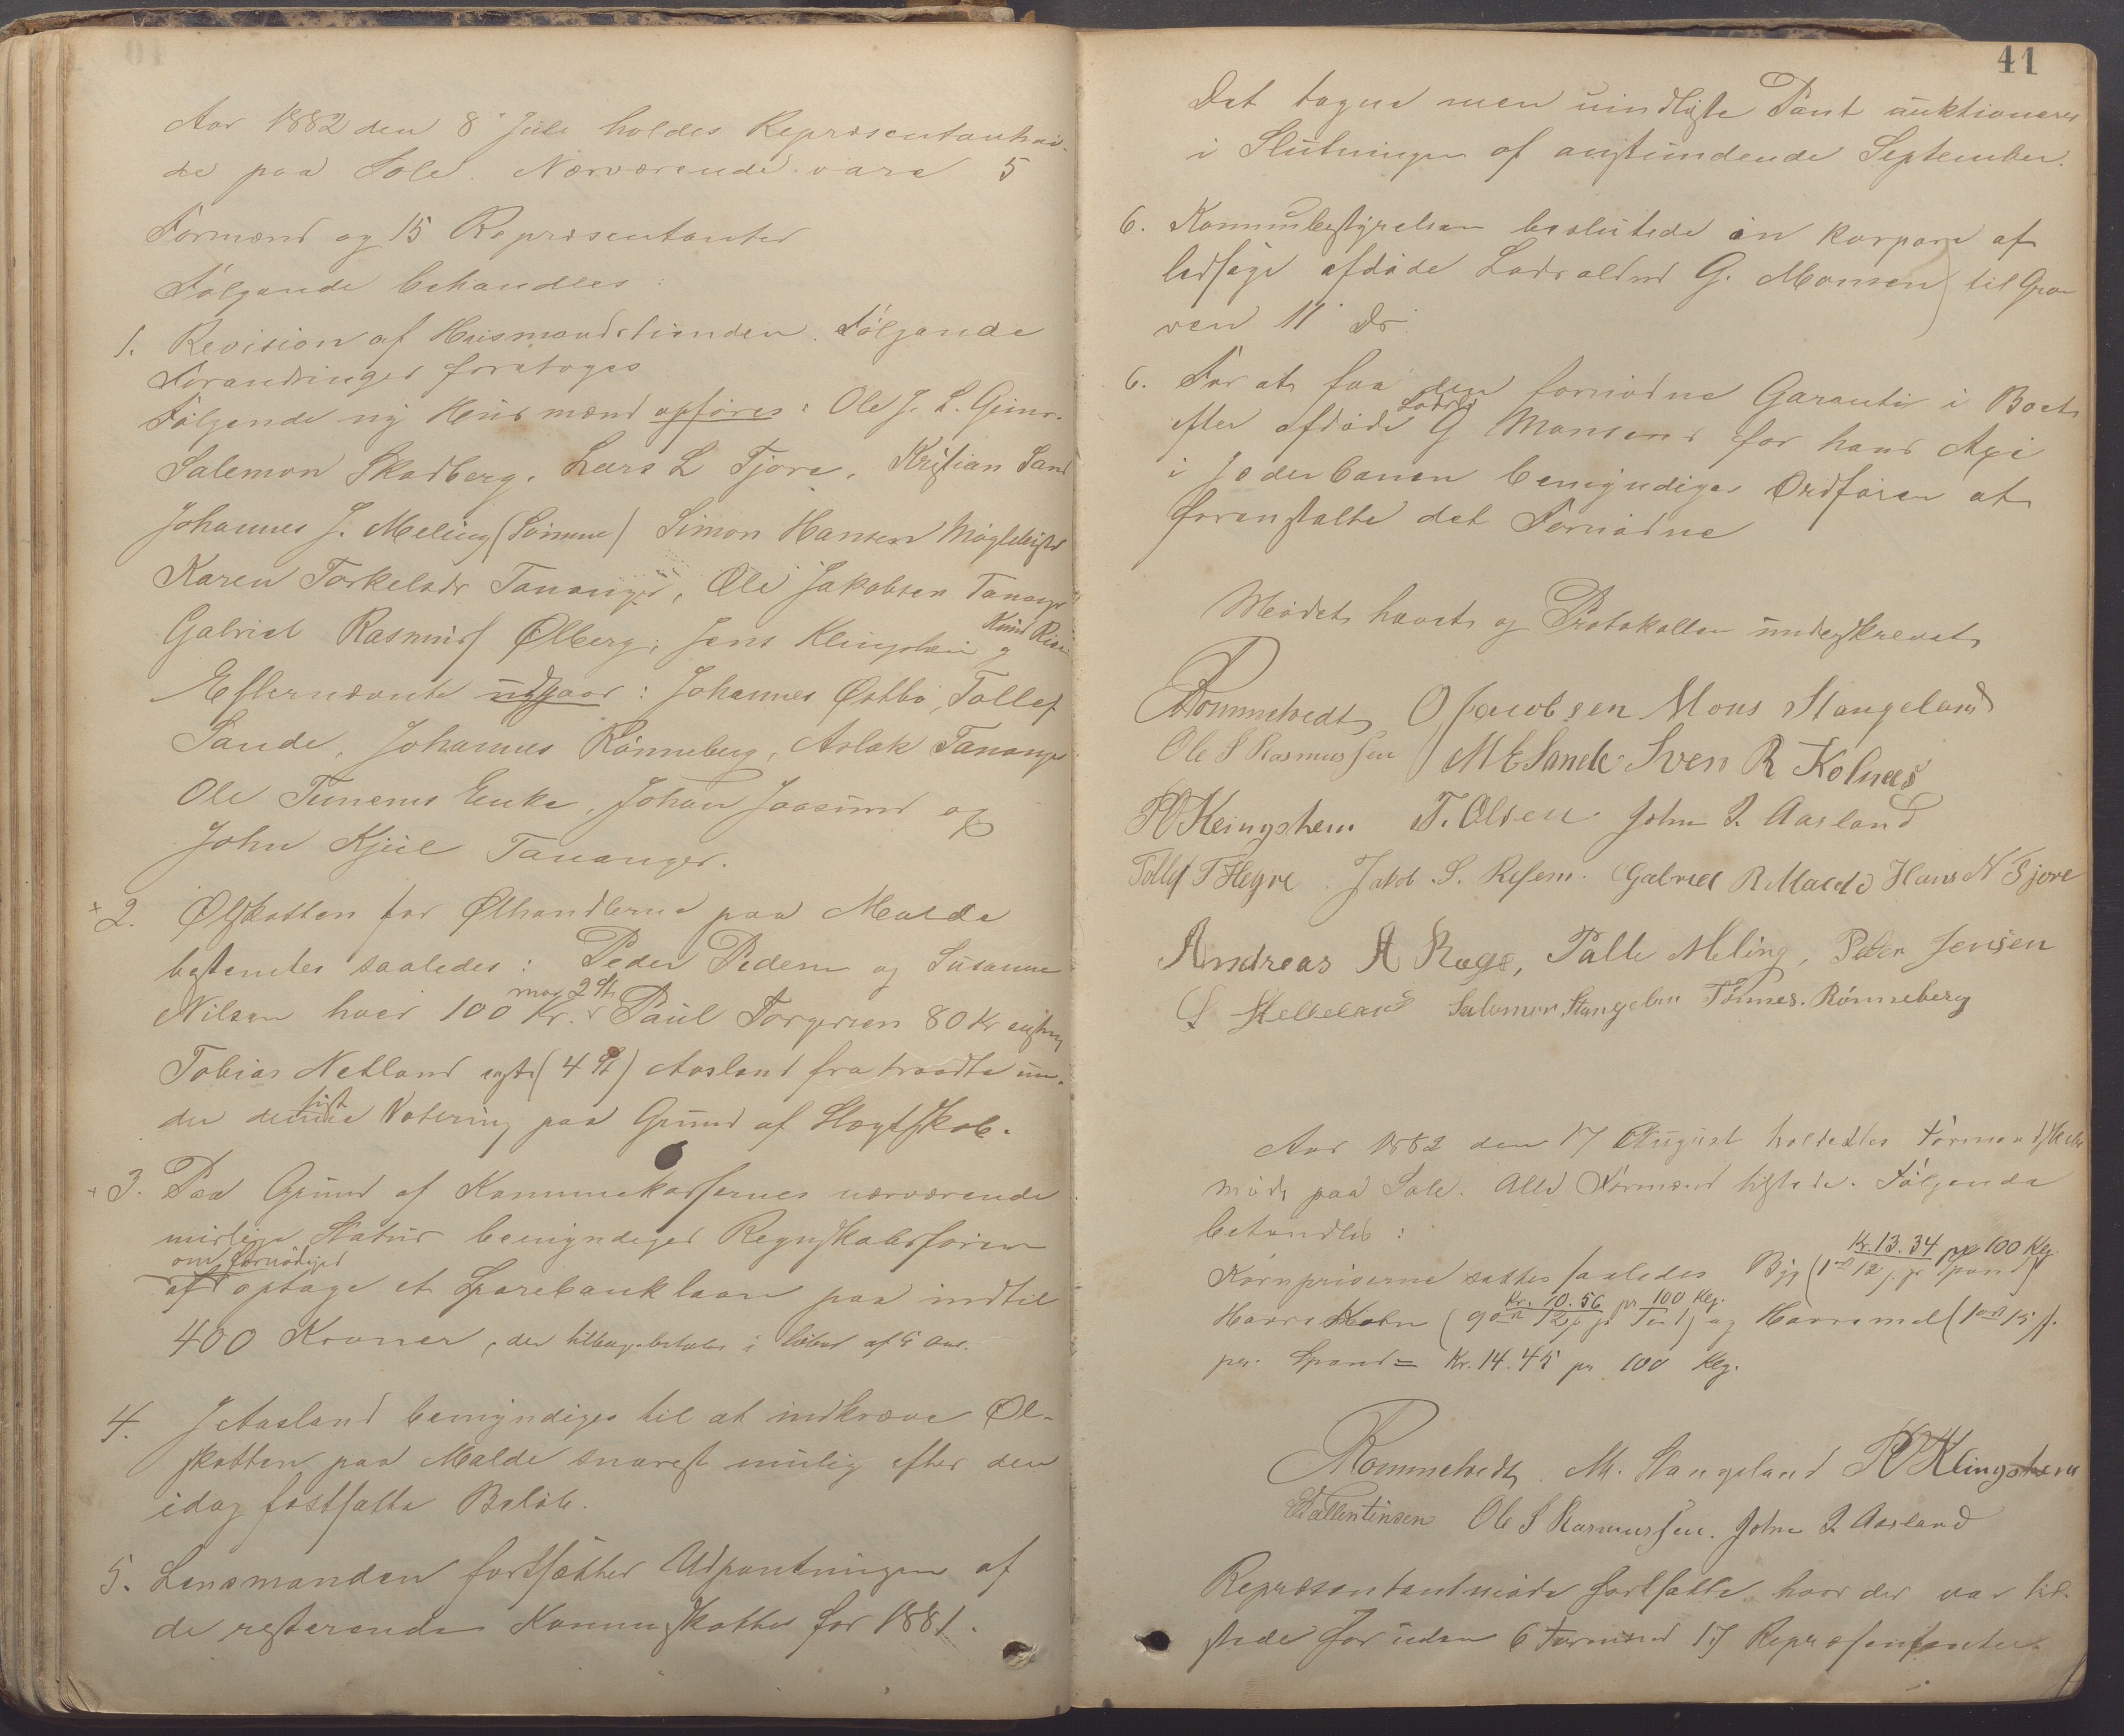 Aar 1882 den 8 Juli holdes Repræsentantmö-
de paa Sole. Nærværende vare 5
Formænd og 15 Repræsentanter
Følgende behandles:
1. Revision af Husmandstienden. Følgende
Forandringer foretoges
Følgende ny Husmænd opföres: Ole J. L. Gimr.
Salemon Skadberg, Lars L Tjora, Kristian Sand
Johannes J. Meling (Sömme) Simon Hansen
Karen Torkelsdr Tananger, Ole Jakobsen Tananger
Gabriel Rasmuss Ølberg, Jens Klingsheim og Knud
Efternævnte udgaar: Johannes Østbö, Tollef
Sande, Johannes Rönneberg, Aslak Tananger
Ole Enke, Johan Joasund og
John Kjül Tananger.
2. Ølskatten for Ølhandlerne paa Malde
bestemtes saaledes: Peder Pedersen og Susanne
Nilsen hver 100 Kr. mod 2 St Paul Torgersen 80 Kr enst
Tobias Netland enst (4 St) Aasland fratraadte un-
der denne sidste Votering paa Grund af Slægtskab.
3. Paa Grund af Kommunekassernes nærværende
mislige Natur bemyndiges Regnskabsföreren
om fornödiget at optage et Sparebanklaan paa indtil
400 Kroner, der tilbagebetales i löbet af 5 Aar.
4. J Aasland bemyndiges til at indkræve Øl-
skatten paa Malde snarest mulig efter den
idag fastsatte Belöb.
5. Lensmanden fortsætter Udpantningen af
de resterende Kommuneskatter for 1881.
41
Det tagne men uindlöste Pant auktioneres
i Slutningen af anstundende September.
6. Kommunbestyrelsen besluttede in korpore at
ledsage afdöde Ladsoldrd G. Monsen til Gra-
ven 11 Ds
6. For at faa den fornödne Garanti i Boet
efter afdöde G Monsens for hans Axi
i Jæderbanen bemyndiges Ordfören at
foranstalte det Fornödne
Mödet hævet og Protokollen underskrevet
Rommetvedt O Jacobsen Mons Stangeland
Ole S Rasmussen M E Sande Sven R Kolnes
P O Klingshem T. Olsen John J. Aasland
Tollef T Hegre Jakob S. Risem. Gabriel R Malde Hans N Tjore
Andreas A Ræge, Palle Meling, Peder Jensen
Helleland Salomon Stangelan Tönnes Rönneberg
Aar 1882 den 17 August holdtes Formandskabs
möde paa Sole. Alle Formænd tilstede. Følgende
behandles:
Kornpriserne sattes saaledes Byg (1 12 pr Spand) Kr. 13.34 pr 100 Kg.
Havre Korn (90 12 pr Tønd) Kr. 10.56 pr 100 Kg. og Havremel (1 15
pr. Spand = Kr. 14.45 pr 100 Kg.
Rommetvedt. M. Stangeland P O Klingshem
Vallentinsen Ole S Rasmussen. John J. Aasland
Repræsentantmöde fortsatte hvor der var til-
stede foruden 6 Formænd 17 Repræsentanter